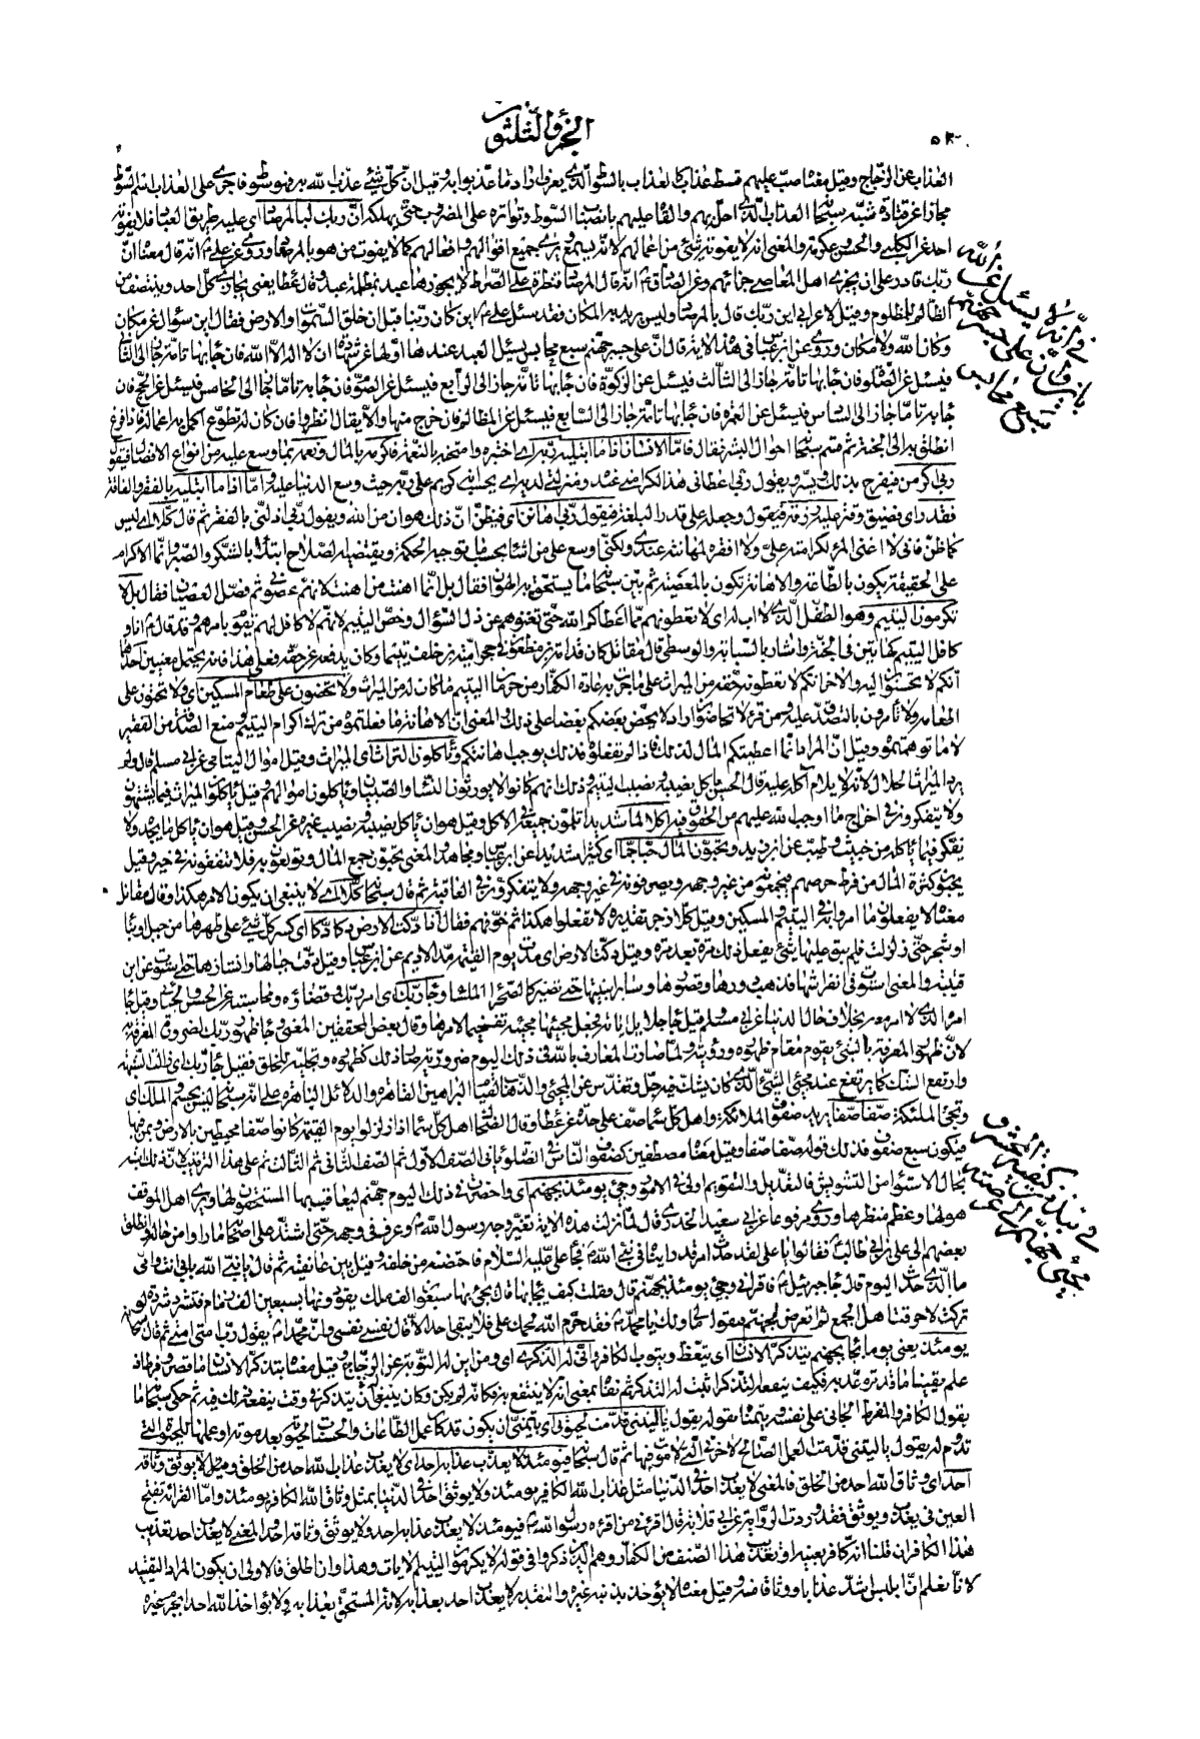 الجزء الثلثون
٥٣٠
العذاب عن الزجاج وقيل معناه صب عليهم قسط عذاب كالعذاب بالسوط الذي يعرف اراد ما عذبوا به وقيل ان كل شيء عذب الله به فهو سوط فاجرى على العذاب اسم السوط
مجازا عن قتادة شبه سبحانه العذاب الذي احله بهم والقاه عليهم بانصباب السوط وتواتره على المضروب حتى يهلكه ان ربك لبالمرصاد اى عليه طريق العباد فلا يفوته
احد عن الكلبى والحسن وعكرمة والمعنى انه لا يفوته شىء من اعمالهم لانه يسمع ويرى جميع اقوالهم وافعالهم كما لا يفوت من هو بالمرصاد وروى عن على ع انه قال معناه ان
ربك قادر على ان يجزى اهل المعاصى جزائهم وعن الصادق ع انه قال المرصاد قنطرة على الصراط لا يجوزها عبد بمظلمة عبد وقال عطا يعنى يجازى كل احد وينتصف من
الظالم للمظلوم وقيل لاعرابى اين ربك قال بالمرصاد وليس يريد به المكان فقد سئل على ع اين كان ربنا قبل ان خلق السموات والارض فقال اين سؤال عن مكان
وكان الله ولا مكان وروى عن ابن عباس فى هذه الاية قال ان على جسر جهنم سبع محابس يسئل العبد عندها اولها عن شهادة ان لا اله الا الله فان جاء بها تامة جاز الى الثانى
فيسئل عن الصلوة فان جاء بها تامة جاز الى الثالث فيسئل عن الزكوة فان جاء بها تامة جاز الى الرابع فيسئل عن الصوم فان جاء به تاما جاز الى الخامس فيسئل عن الحج فان
جاء به تاما جاز الى السادس فيسئل عن العمرة فان جاء بها تامة جاز الى السابع فيسئل عن المظالم فان خرج منها والا يقال انظروا فان كان له تطوع اكمل به اعماله فاذا فرغ
انطلق به الى الجنة ثم قسم سبحانه احوال البشر فقال فاما الانسان اذا ما ابتليه ربه اى اختبره وامتحنه بالنعمة فاكرمه بالمال ونعمه بما وسع عليه من انواع الافضال فيقول
ربى اكرمن فيفرح بذلك ويسر ويقول ربى اعطانى هذا لكرامتى عنده ومنزلتى لديه اى يحسب انه كريم على ربه حيث وسع الدنيا عليه واما اذا ما ابتليه بالفقر والفاقة
فقدر اى فضيق وقتر عليه رزقه فيقول وجعله على قدر البلغة فيقول ربى اهانن اى فيظن ان ذلك هوان من الله ويقول ربى اذلنى بالفقر ثم قال كلا اى ليس
كما ظن فانى لا اغنى المرء لكرامته على ولا افقره لمهانته عندى ولكنى اوسع على من اشاء بحسب ما توجبه الحكمة ويقتضيه الصلاح ابتلاء بالشكر والصبر وانما الاكرام
على الحقيقة يكون بالطاعة والاهانة تكون بالمعصية ثم بين سبحانه ما يستحق به الهوان فقال بل انما اهنت من اهنت لانهم عصونى ثم فصل العصيان فقال بل لا
تكرمون اليتيم وهو الطفل الذى لا اب له اى لا تعطونهم مما اعطاكم الله حتى تغنوهم عن ذل السؤال وخص اليتيم لانهم لا كافل لهم يقوم بامرهم وقد قال ع انا و
كافل اليتيم كهاتين فى الجنة واشار بالسبابة والوسطى قال مقاتل كان قدامة بن مظعون فى حجر امية بن خلف يتيما وكان يدفعه عن حقه فعلى هذا فانه يحتمل معنيين احدهما
انكم لا تحسنون اليه والاخر انكم لا تعطونه حقه من الميراث على ما جرت به عادة الكفار من حرمان اليتيم ما كان له من الميراث ولا تحضون على طعام المسكين اى ولا تحثون على
اطعامه ولا تامرون بالتصدق عليه ومن قرء لا تحاضون اراد لا يحض بعضكم بعضا على ذلك والمعنى ان الاهانة ما فعلتموه من ترك اكرام اليتيم ومنع الصدقة من الفقير
لا ما توهمتموه وقيل ان المراد انما اعطيتكم المال لذلك فاذا لم تفعلوه فذلك يوجب اهانتكم وتاكلون التراث اى الميراث وقيل اموال اليتامى عن ابى مسلم قال ولم
يرد الميراث الحلال لانه لا يلام آكله عليه قال الحسن ياكل نصيبه ونصيب اليتيم وذلك انهم كانوا لا يورثون النساء والصبيان وياكلون اموالهم وقيل ياكلون الميراث فيما يشتهون
ولا يتفكرون فى اخراج ما اوجب الله عليهم من الحقوق فيه اكلا لما شديدا تلمون جميعه فى الاكل وقيل هو ان ياكل نصيبه ونصيب غيره عن الحسن وقيل هو ان ياكل ما يجده ولا
يفكر فيما ياكله من خبيث وطيب عن ابن زيد وتحبون المال حبا جما اى كثيرا شديدا عن ابن عباس ومجاهد والمعنى تحبون جمع المال وتولعون به فلا تنفقونه فى خير وقيل
يحبون كثرة المال من فرط حرصهم فيجمعونه من غير وجهه ويصرفونه فى غير وجهه ولا يتفكرون فى العاقبة ثم قال سبحانه كلا اى لا ينبغى ان يكون الامر هكذا وقال مقاتل
معناه لا يفعلون ما امروا به فى اليتيم والمسكين وقيل كلا زجر تقديره لا تفعلوا هكذا ثم خوفهم فقال اذا دكت الارض دكا دكا اى كسر كل شىء على ظهرها من جبل او بناء
او شجر حتى زلزلت فلم يبق عليها شىء يفعل ذلك مرة بعد مرة وقيل دكت الارض اى مدت يوم القيمة مد الاديم عن ابن عباس وقيل دقت جبالها وانشازها حتى استوت عن ابن
قتيبة والمعنى استوت فى انفراشها فذهب دورها وقصورها وسائر ابنيتها حتى تصير كالصحراء الملساء وجاء ربك اى امر ربك وقضاؤه ومحاسبته عن الحسن والجبائى وقيل جاء
امره الذى لا امر معه بخلاف حال الدنيا عن ابى مسلم وقيل جاء جلائل اياته فجعل مجيئها مجيئه تفخيما لامرها وقال بعض المحققين المعنى وجاء ظهور ربك لضرورة المعرفة
لان ظهور المعرفة بالشىء يقوم مقام ظهوره ورؤيته ولما صارت المعارف بالله فى ذلك اليوم ضرورية صار ذلك كظهوره وتجليه للخلق فقيل جاء ربك اى زالت الشبهة
وارتفع الشك كما يرتفع عند مجىء الشىء الذى كان يشك فيه جل وتقدس عن المجىء والذهاب لقيام البراهين القاهرة والدلائل الباهرة على انه سبحانه ليس بجسم والملك اى
وتجىء الملئكة صفا صفا يريد صفوف الملائكة واهل كل سماء صف على حدة عن عطا وقال الضحاك اهل كل سماء اذا زلزلوا يوم القيمة كانوا صفا محيطين بالارض وبمن فيها
فيكون سبع صفوف فذلك قوله صفا صفا وقيل معناه مصطفين كصفوف الناس فى الصلوة ياتى الصف الاول ثم الصف الثانى ثم الثالث ثم على هذا الترتيب لان ذلك اشبه
بحال الاستواء من التشويش فالتعديل والتقويم اولى فى الامور وجىء يومئذ بجهنم اى واحضرت فى ذلك اليوم جهنم ليعاقب بها المستحقون لها ويرى اهل الموقف
هولها وعظم منظرها وروى مرفوعا عن ابى سعيد الخدرى قال لما نزلت هذه الاية تغير وجه رسول الله ص وعرف فى وجهه حتى اشتد على اصحابه ما راوا من حاله وانطلق
بعضهم الى على بن ابى طالب ع فقالوا يا على لقد حدث امر قد رايناه فى نبى الله ص فجاء على عليه السلام فاحتضنه من خلفه وقبل بين عاتقيه ثم قال يا نبى الله بابى انت وامى
ما الذى حدث اليوم قال جاء جبرئيل ع فاقرانى وجىء يومئذ بجهنم قال فقلت كيف يجاء بها قال يجىء بها سبعون الف ملك يقودونها بسبعين الف زمام فتشرد شردة لو
تركت لاحرقت اهل الجمع ثم اتعرض لجهنم فتقول مالى ولك يا محمد ص فقد حرم الله لحمك على فلا يبقى احد الا قال نفسى نفسى وان محمدا ص يقول رب امتى امتى ثم قال سبحانه
يومئذ يعنى يوم يجاء بجهنم يتذكر الانسان اى يتعظ ويتوب الكافر وانى له الذكرى اى ومن اين له التوبة عن الزجاج وقيل معناه يتذكر الانسان ما قصر وفرط اذ
علم يقينا ما قد توعد به فكيف ينفعه التذكر اثبت له التذكر ثم نفاه بمعنى انه لا ينتفع به فكانه لم يكن وكان ينبغى ان يتذكر فى وقت ينفعه ذلك فيه ثم حكى سبحانه ما
يقول الكافر والمفرط الجانى على نفسه ويتمناه بقوله يقول يا ليتنى قدمت لحيوتى اى يتمنى ان يكون قد كان عمل الطاعات والحسنات لحيوته بعد موته او عملها للحيوة التى
تدوم له يقول يا ليتنى قدمت العمل الصالح لاخرتى التى لا موت فيها ثم قال سبحانه فيومئذ لا يعذب عذابه احد اى لا يعذب عذاب الله احد من الخلق وقيل لا يوثق وثاقه
احد اى وثاق الله احد من الخلق فالمعنى لا يعذب احد فى الدنيا مثل عذاب الله الكافر يومئذ ولا يوثق احد فى الدنيا بمثل وثاق الله الكافر يومئذ واما القرائة بفتح
العين فى يعذب ويوثق فقد وردت الرواية عن ابى قلابة قال اقرانى من اقراه رسول الله ص فيومئذ لا يعذب عذابه احد ولا يوثق وثاقه احد والمعنى لا يعذب احد تعذيب
هذا الكافر ان قلنا انه كافر بعينه او تعذيب هذا الصنف من الكفار وهم الذين ذكروا فى قوله لا يكرمون اليتيم الايات وهذا وان اطلق فالاولى ان يكون المراد التقييد
لانا نعلم ان ابليس اشد عذابا ووثاقا منه وقيل معناه لا يؤخذ بذنبه غيره والتقدير لا يعذب احد بعذابه لانه المستحق بعذابه ولا يؤاخذ الله احدا بجرم غيره